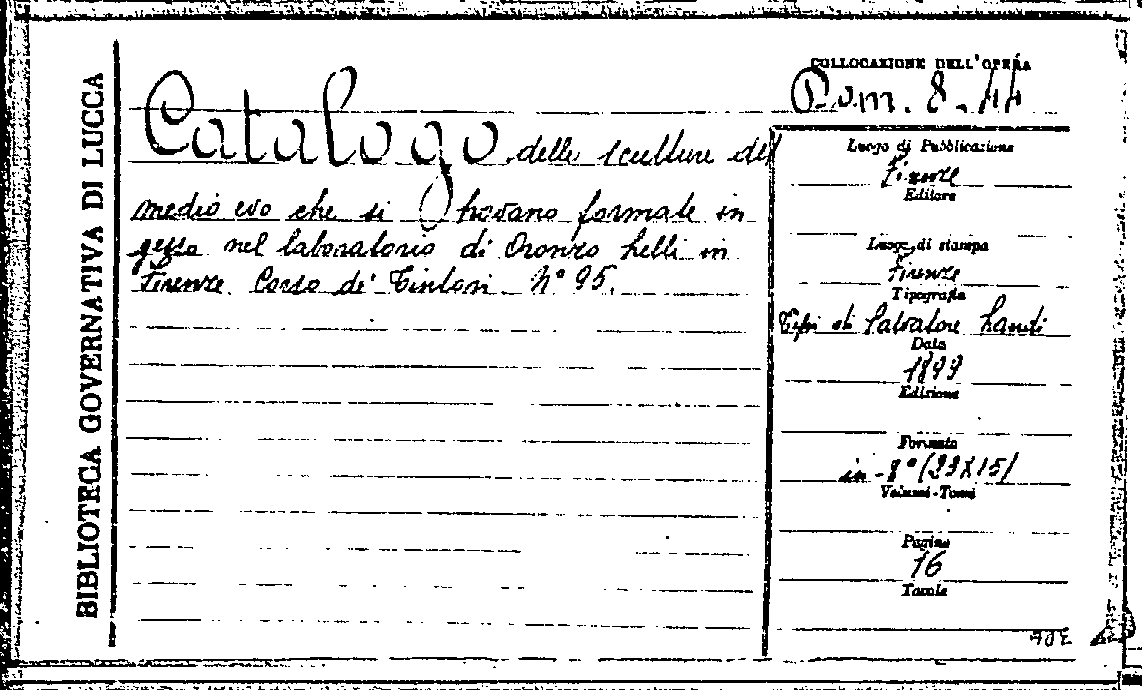 BIBLIOTECA GOVERNATIVA DI LUCCA
COLLOCAZIONE DELL'OPERA
Pom. 8.44
Catalogo delle sculture del
medio evo che si trovano formate in
gesso nel laboratorio di Oronzo Lelli in
Firenze Corso de' Tintori N° 95.
Luogo di Pubblicazione
Firenze
Editore
Luogo di stampa
Firenze
Tipografia
Tipi di Salvatore Landi
Data
1899
Edizione
Formato
in-8° (23X15)
Volumi-Tomi
Pagine
16
Tavole